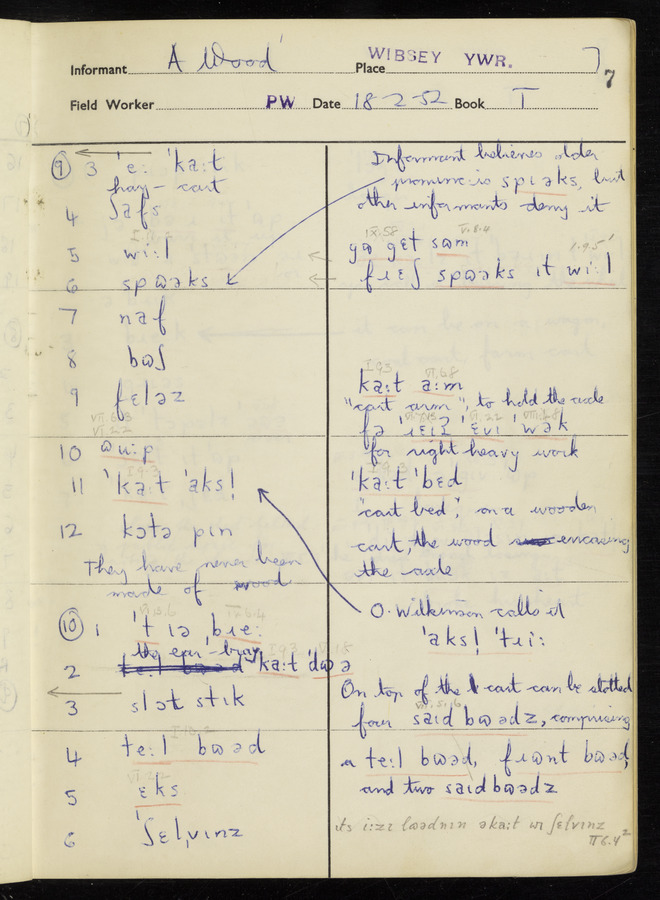 Informant A Wood Place WIBSEY YWR. 7
Field Worker PW Date 18-2-52 Book I
⑨ 3 ˈeː ˈkaːt
hay-cart
4 ʃafs
5 wiːl
6 spʊəks
7 naf
8 bʊʃ
9 fɛləz
VII.6.3
VI.2.2
10 uːp
I.9.3
11 ˈkaːt ˈaksl̩
12 kɔtə pin
They have never been
made of wood
⑩ 1 ˈt ɪə brɛː
VI.13.6
2 teːl bʊəd ˈkaːt ˈdʊə
I.9.3
3 slɔt stɪk
4 teːl bʊəd
I.10.2
5 ɛks
6 ˈʃɛlˌvɪnz
Informant believes older
is spɪəks, but
other informants deny it
IX.58 V.8.4
gʊ get sʊm
1.9.5
fɹɛʃ spʊəks ɪt wiːl
I.9.3 VI.6.8
kaːt aːm
"cart arm", to hold the axle
for right heavy work
I.9.3
ˈkaːt ˈbɛd
"cart bed", on a wooden
cart, the wood encasing
the axle
O. Wilkinson calls it
ˈaksl̩ ˈtɹiː
On top of the cart can be slotted
VII.5.16
four saɪd bʊədz, comprising
a teːl bʊəd, fɹʊnt bʊəd,
and two saɪdbʊədz
ɪts iːzɪ lʊədnɪn əkaːt wɪ ʃɛlvɪnz
II 6.4²